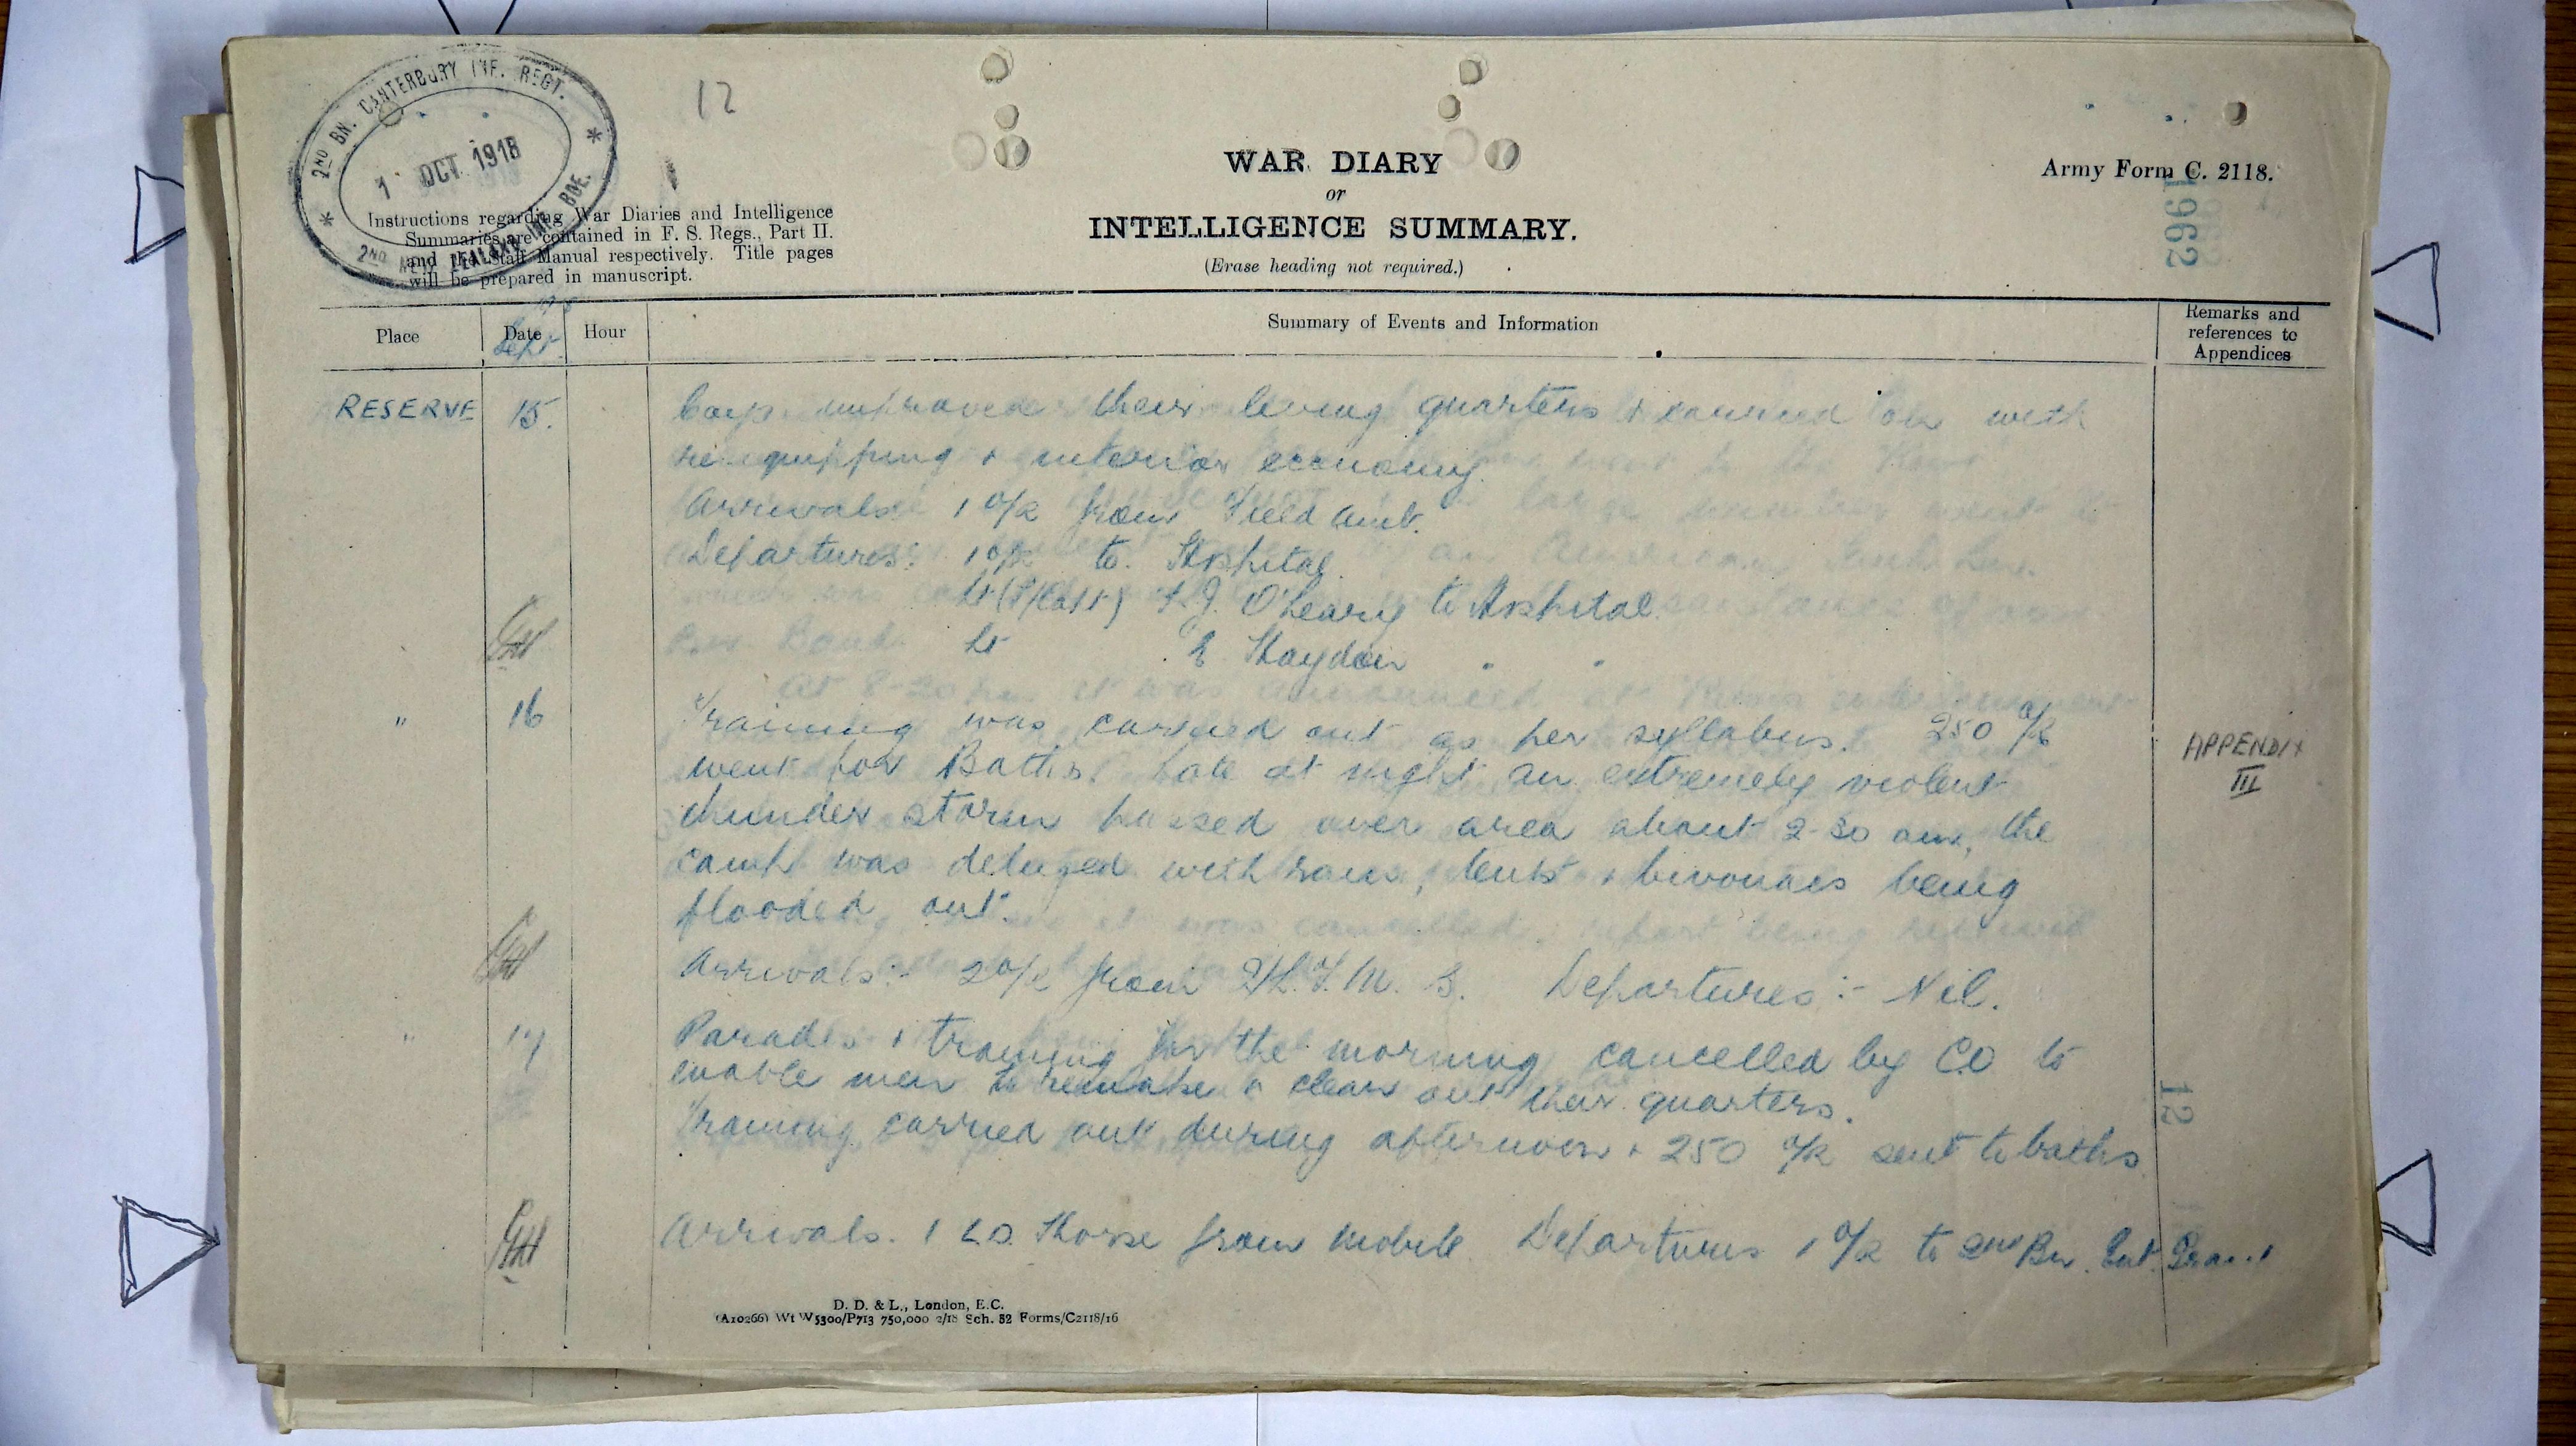 2ND BN. CANTERBURY INF. REGT.
1 OCT 1918
2ND NEW ZEALAND INF. BDE.
12
WAR DIARY
or
INTELLIGENCE SUMMARY.
(Erase heading not required.)
Army Form C. 2118.
1962
Instructions regarding War Diaries and Intelligence
Summaries are contained in F. S. Regs., Part II.
and the Staff Manual respectively. Title pages
will be prepared in manuscript.
Place
Date
Sept.
Hour
Summary of Events and Information
Remarks and
references to
Appendices
RESERVE 15. Coys improved their living quarters & carried on with
re-equipping & interior economy.
Arrivals 1 O/R from Field Amb.
Departures: 1 O/R to Hospital
Lt (T/Capt) F.J. O'Leary to Hospital
Lt E Haydon " "
" 16 Training was carried out as per syllabus. 250 O/R
APPENDIX
III
went for Baths. Late at night an extremely violent
thunder storm passed over area about 2-30 am, the
camp was deluged with rain, tents & bivouacs being
flooded out.
Arrivals:- 2 O/R from L.T.M.B. Departures:- Nil.
" 17 Parades & training for the morning cancelled by C.O to
enable men to remake & clean out their quarters.
Training carried out during afternoon & 250 O/R sent to baths
12
Arrivals. 1 L.D. Horse from Mobile. Departures 1 O/R to 2nd Bn. Ent.
D. D. & L., London, E.C.
(A10266) Wt W5300/P713 750,000 2/18 Sch. 52 Forms/C2118/16